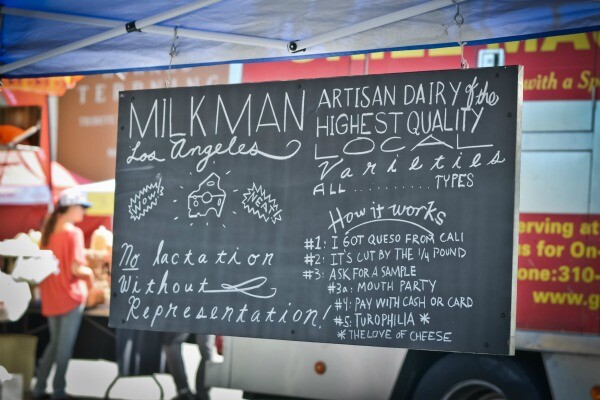 MILKMAN
Los Angeles
WOW!
NEAT!
No lactation
Without
Representation!
ARTISAN DAIRY of the
HIGHEST QUALITY
LOCAL
Varieties
ALL .......... TYPES
How it works
#1: I GOT QUESO FROM CALI
#2: IT'S CUT BY THE 1/4 POUND
#3: ASK FOR A SAMPLE
#3a: MOUTH PARTY
#4: PAY WITH CASH OR CARD
#5: TUROPHILIA *
* THE LOVE OF CHEESE
with a Sp
erving at
s for On-
one:310-
www.g